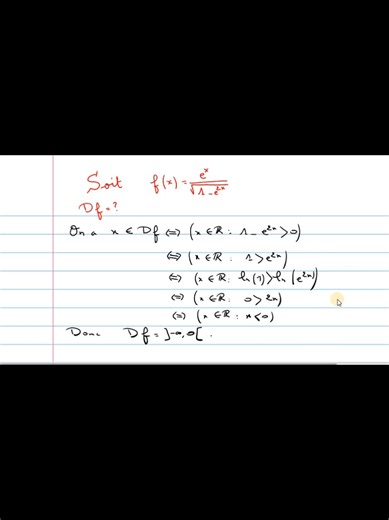 Soit f(x) = e^x / √(1 - e^{2x})
Df = ?
On a x ∈ Df ⇔ (x ∈ ℝ : 1 - e^{2x} > 0)
⇔ (x ∈ ℝ : 1 > e^{2x})
⇔ (x ∈ ℝ : ln(1) > ln(e^{2x})
⇔ (x ∈ ℝ : 0 > 2x)
⇔ (x ∈ ℝ : x < 0)
Donc Df = ]-∞, 0[ .